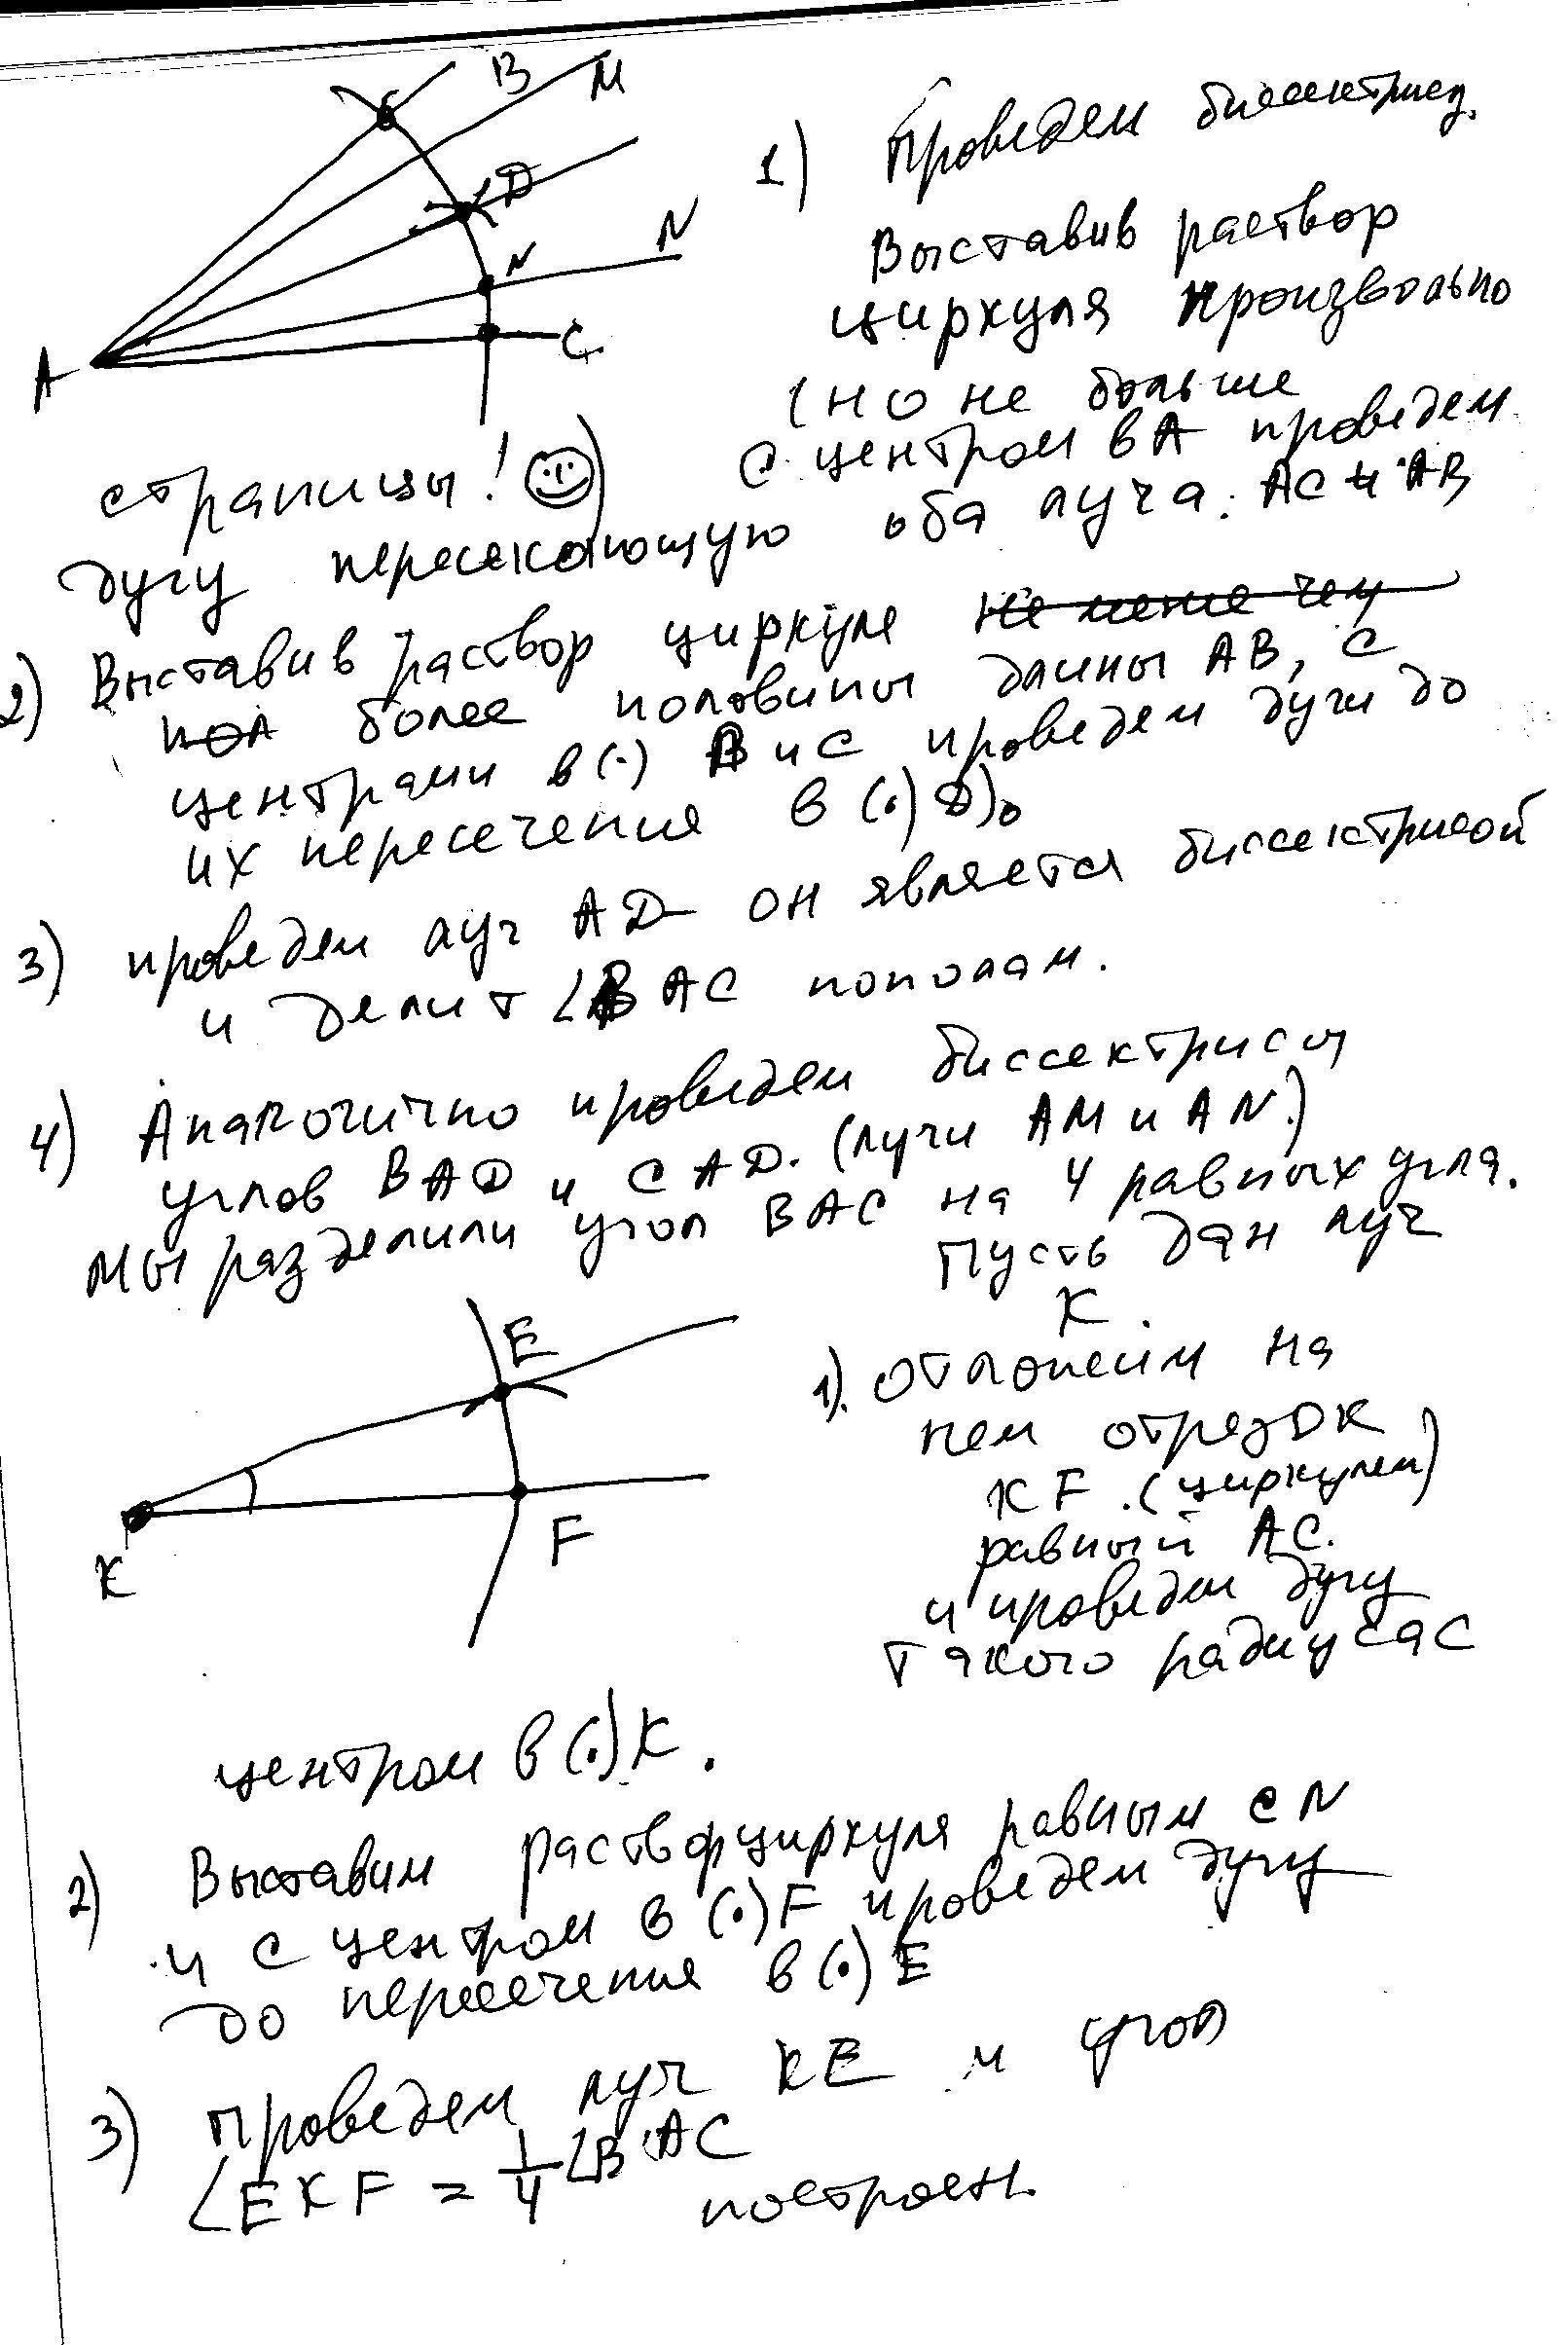 B M
D
N N
C
A
1) Проведем биссектрису.
Выставив раствор
циркуля произвольно
(но не больше
страницы! ☺) С центром в A проведем
дугу пересекающую оба луча: AC и AB
2) Выставив раствор циркуля не менее чем
пол более половины длины AB, с
центрами в (·) B и C проведем дуги до
их пересечения в (·) D).
3) проведем луч AD он является биссектрисой
и делит ∠BAC пополам.
4) Аналогично проведем биссектрисы
углов BAD и CAD. (лучи AM и AN.)
Мы разделили угол BAC на 4 равных угла.
Пусть дан луч
K.
E
K
F
1). Отложим на
нем отрезок
KF. (циркулем)
равный AC.
и проведем дугу
такого радиуса с
центром в (·) K.
2) Выставим раствор циркуля равным CN
и с центром в (·) F проведем дугу
до пересечения в (·) E
3) Проведем луч KE и угол
∠EKF = 1/4 ∠BAC
построен.